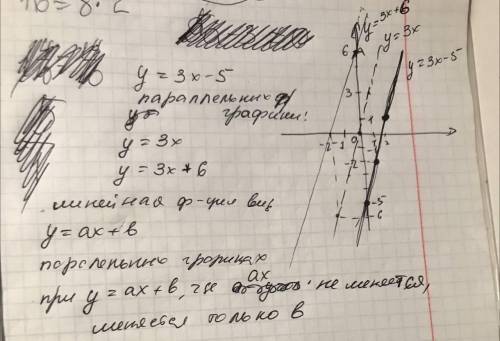 y = 3x - 5
параллельных
графики:
y = 3x
y = 3x + 6
линейная ф-ция вид
y = ax + b
параллельных графиках
при y = ax + b, где ax не меняется,
меняется только b
y = 3x + 6
y = 3x
y = 3x - 5
6
3
1
-2 -1 0 1 2
-2
-5
-6